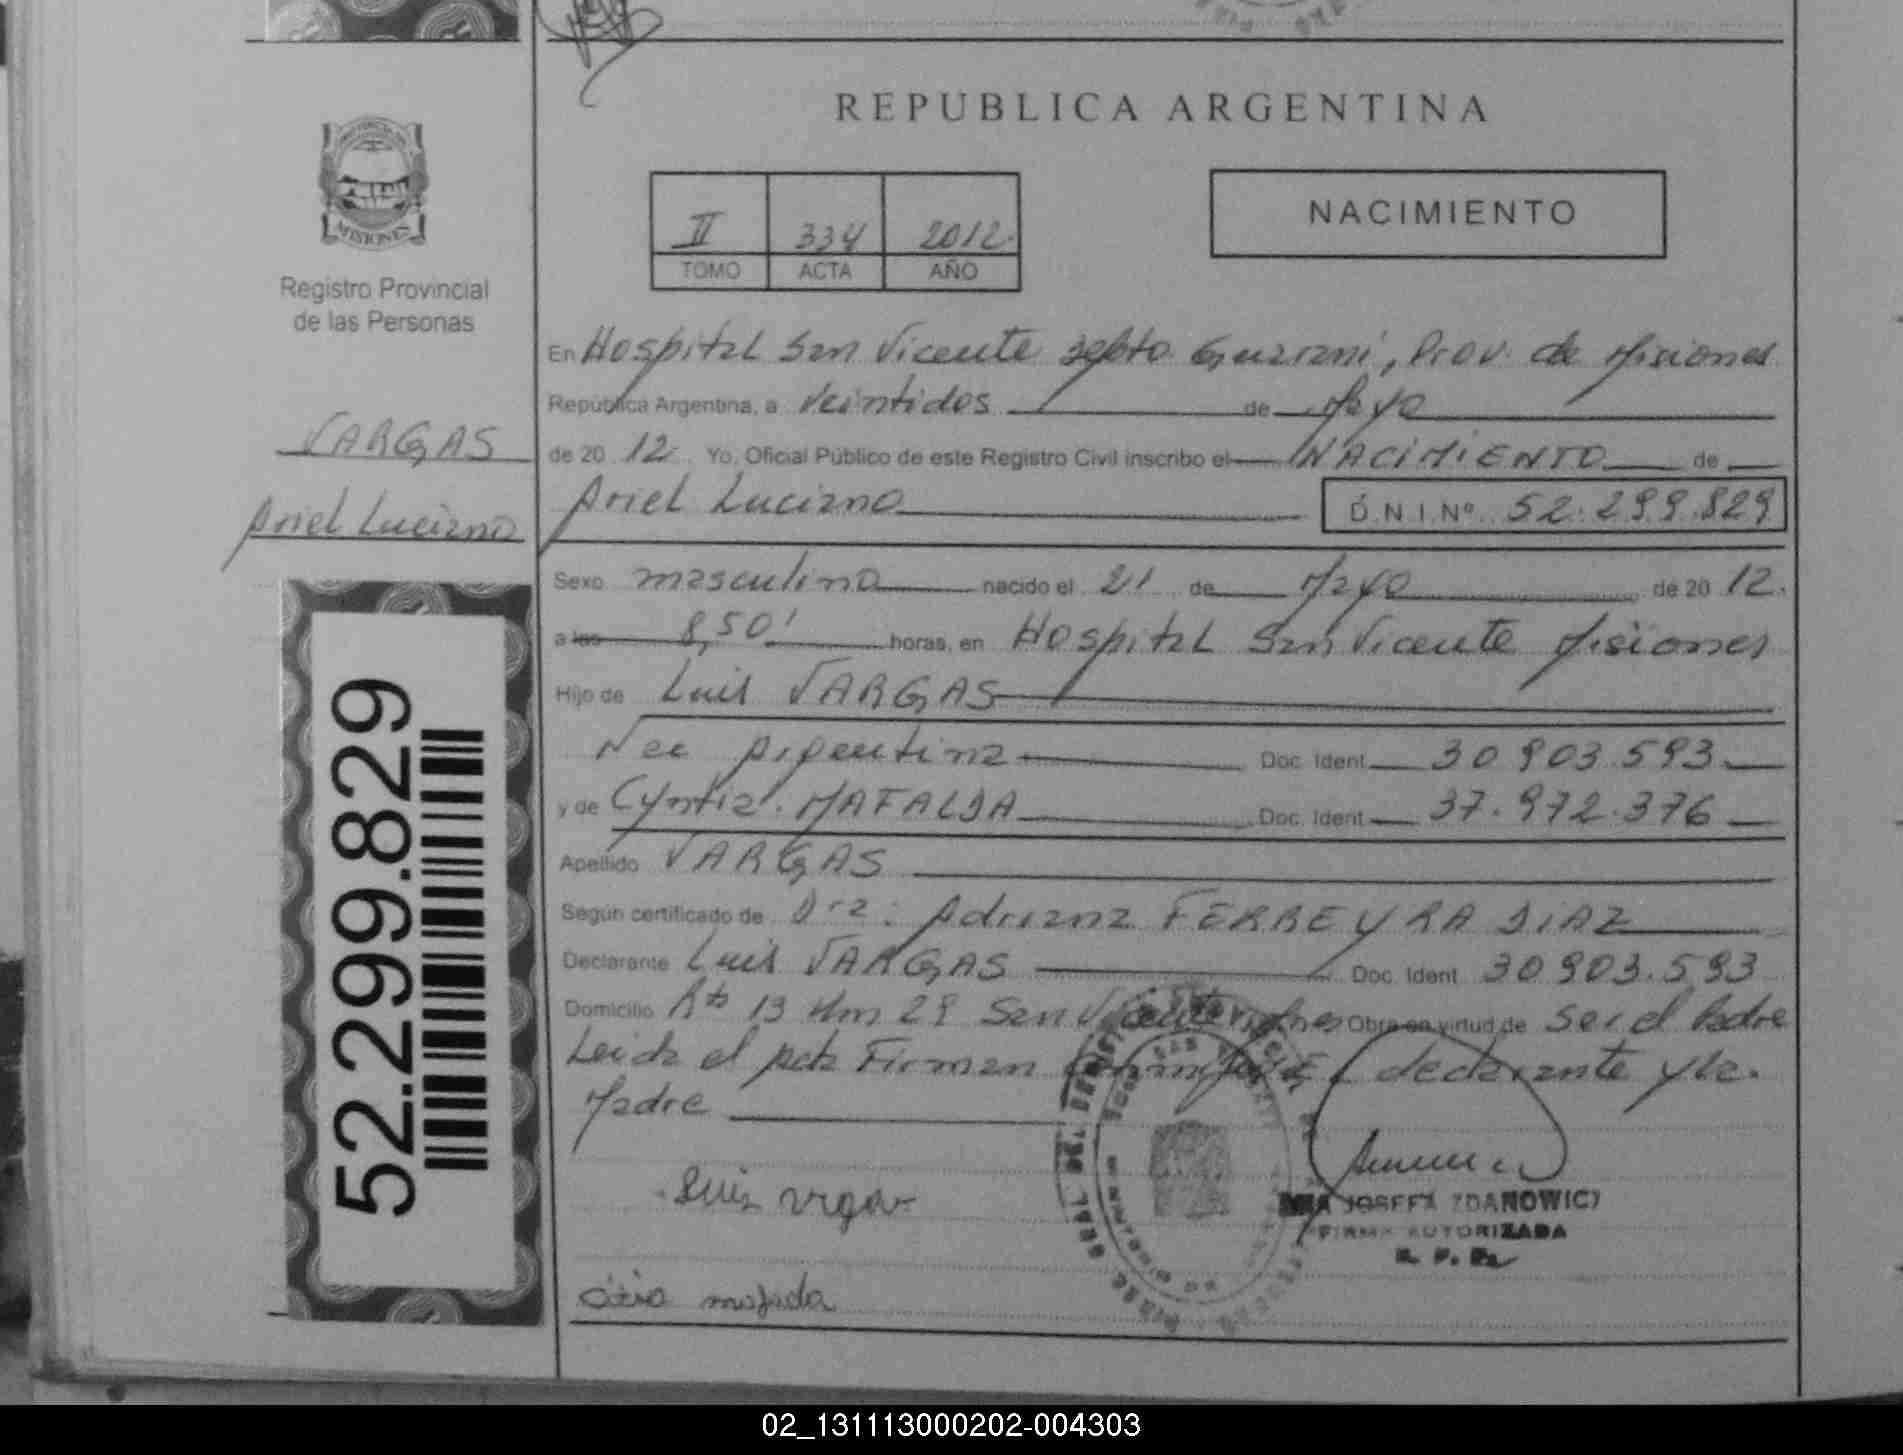 REPUBLICA ARGENTINA
NACIMIENTO
II 334 2012
TOMO ACTA AÑO
MISIONES
Registro Provincial
de las Personas
VARGAS
Ariel Luciano
52.299.829
En Hospital San Vicente Dpto Guaraní, Prov. de Misiones
República Argentina, a Veintidos de Mayo
de 20 12 Yo, Oficial Público de este Registro Civil inscribo el NACIMIENTO de
Ariel Luciano D.N.I.Nº 52.299.829
Sexo masculino nacido el 21 de Mayo de 20 12.
a las 8,50' horas, en Hospital San Vicente Misiones
Hijo de Luis VARGAS
Nac Argentina Doc. Ident. 30.903.593
y de Cyntia MAFALDA Doc. Ident 37.972.376
Apellido VARGAS
Según certificado de Dra: Adriana FERREYRA DIAZ
Declarante Luis VARGAS Doc. Ident 30.903.593
Domicilio Rta 13 Km 29 San Vicente Misiones Obra en virtud de Ser el Padre
Leida el Acta Firman declarante y la
Madre
Luis
mafada
JOSEFA ZDANOWICZ
FIRMA AUTORIZADA
R. P. P.
02_131113000202-004303